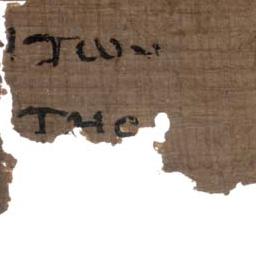 ΙΤΩΝ
ΤΗϹ